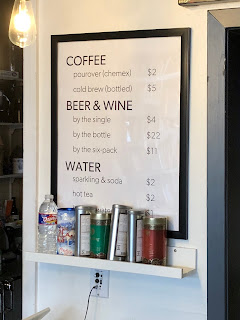 COFFEE
pourover (chemex) $2
cold brew (bottled) $5
BEER & WINE
by the single $4
by the bottle $22
by the six-pack $11
WATER
sparkling & soda $2
hot tea $2